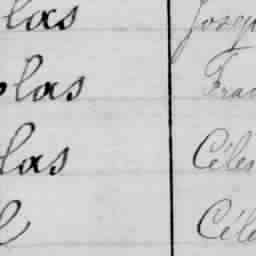 las Josep
olas Fran
las Céles
l Céle